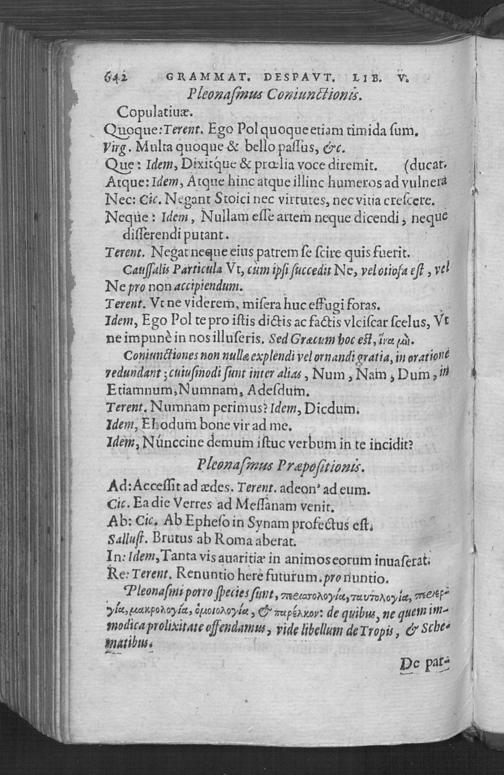 642 GRAMMAT. DESPAVT. LIB. V.
Pleonaſmus Coniunctionis.
Copulatiuæ.
Quoque: Terent. Ego Pol quoque etiam timida ſum.
Virg. Multa quoque & bello paſſus, &c.
Que: Idem, Dixitque & prœlia voce diremit. (ducat.
Atque: Idem, Atque hinc atque illinc humeros ad vulnera
Nec: Cic. Negant Stoici nec virtutes, nec vitia creſcere.
Neque: Idem, Nullam eſſe artem neque dicendi, neque
diſſerendi putant.
Terent. Negat neque eius patrem ſe ſcire quis fuerit.
Cauſſalis Particula Vt, cum ipſi ſuccedit Ne, vel otioſa eſt, vel
Ne pro non accipiendum.
Terent. Vt ne viderem, miſera huc effugi foras.
Idem, Ego Pol te pro iſtis dictis ac factis vlciſcar ſcelus, Vt
ne impunè in nos illuſeris. Sed Græcum hoc eſt, ἵνα μὴ.
Coniunctiones non nullæ explendi vel ornandi gratia, in oratione
redundant; cuiuſmodi ſunt inter alias, Num, Nam, Dum, in
Etiamnum, Numnam, Adeſdum.
Terent. Numnam perimus? Idem, Dicdum.
Idem, Ehodum bone vir ad me.
Idem, Núnccine demum iſtuc verbum in te incidit?
Pleonaſmus Præpoſitionis.
Ad: Acceſſit ad ædes. Terent. adeon' ad eum.
Cic. Ea die Verres ad Meſſanam venit.
Ab: Cic. Ab Epheſo in Synam profectus eſt.
Salluſt. Brutus ab Roma aberat.
In: Idem, Tanta vis auaritiæ in animos eorum inuaſerat.
Re: Terent. Renuntio here futurum. pro nuntio.
Pleonaſmi porro ſpecies ſunt, περισσολογία, ταυτολογία,
γία, μακρολογία, ὁμοιολογία, & παρέλκον: de quibus, ne quem im-
modica prolixitate offendamus, vide libellum de Tropis, & Sche-
matibus.
De par-